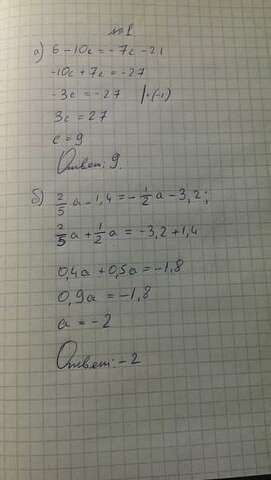 №1
а) 6 - 10c = -7c - 21
-10c + 7c = -27
-3c = -27 |·(-1)
3c = 27
c = 9
Ответ: 9.
б) 2/5 a - 1,4 = -1/2 a - 3,2;
2/5 a + 1/2 a = -3,2 + 1,4
0,4a + 0,5a = -1,8
0,9a = -1,8
a = -2
Ответ: -2